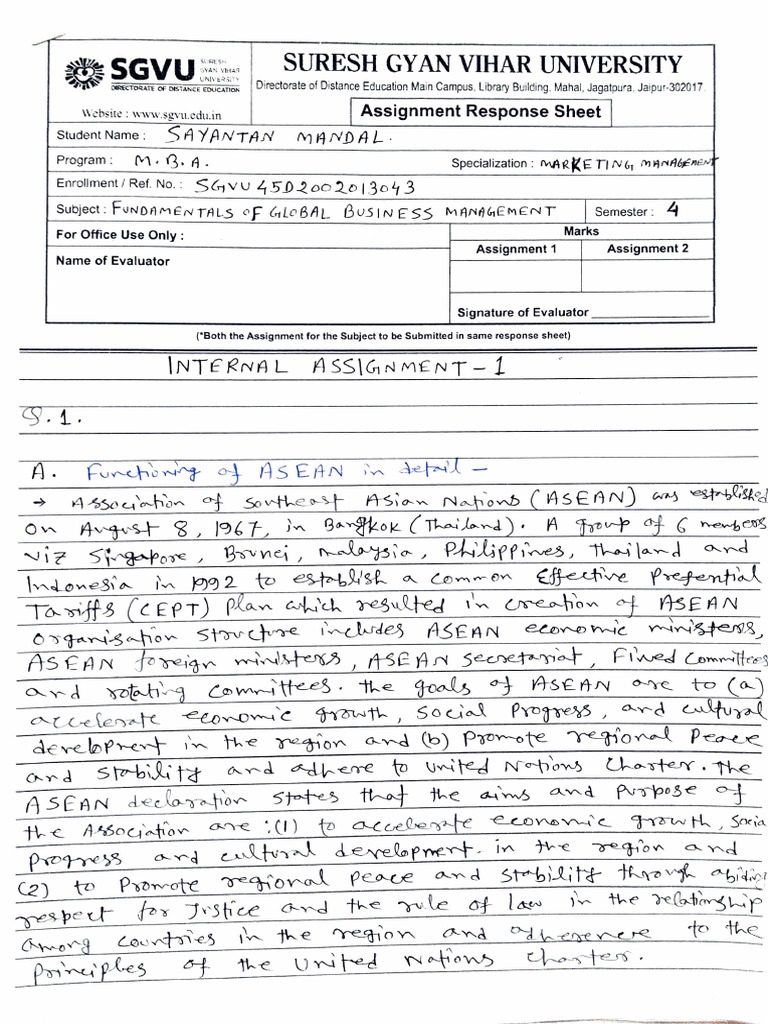 SGVU
SURESH
GYAN VIHAR
UNIVERSITY
DIRECTORATE OF DISTANCE EDUCATION
Website : www.sgvu.edu.in
SURESH GYAN VIHAR UNIVERSITY
Directorate of Distance Education Main Campus, Library Building, Mahal, Jagatpura, Jaipur-302017.
Assignment Response Sheet
Student Name : SAYANTAN MANDAL.
Program : M.B.A. Specialization : MARKETING MANAGEMENT
Enrollment / Ref. No. : SGVU45D2002013043
Subject : FUNDAMENTALS OF GLOBAL BUSINESS MANAGEMENT Semester : 4
For Office Use Only : Marks
Name of Evaluator Assignment 1 Assignment 2
Signature of Evaluator
(*Both the Assignment for the Subject to be Submitted in same response sheet)
INTERNAL ASSIGNMENT - 1
Q.1.
A. Functioning of ASEAN in detail -
→ Association of Southeast Asian Nations (ASEAN) was established
on August 8, 1967, in Bangkok (Thailand). A group of 6 members
viz Singapore, Brunei, Malaysia, Philippines, Thailand and
Indonesia in 1992 to establish a common Effective Prefential
Tariffs (CEPT) Plan which resulted in creation of ASEAN
Organisation structure includes ASEAN economic ministers,
ASEAN foreign ministers, ASEAN secretariat, Fixed Committees
and rotating committees. The goals of ASEAN are to (a)
accelerate economic growth, Social Progress, and cultural
development in the region and (b) Promote regional Peace
and stability and adhere to United Nations Charter. The
ASEAN declaration states that the aims and Purpose of
the Association are :(1) to accelerate economic growth, Socia
Progress and cultural development. in the region and
(2) to Promote regional peace and stability through abiding
respect for Justice and the rule of law in the relationship
among countries in the region and adherence to the
Principles of the United Nations Charter.